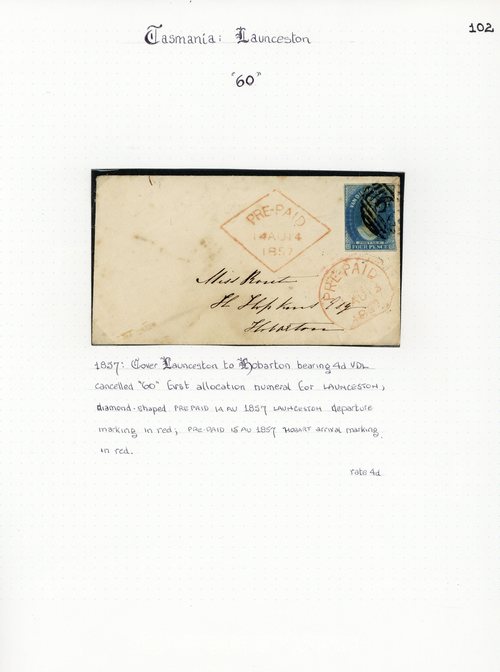 Tasmania: Launceston
102
"60"
PRE-PAID
14 AU 14
1857
VAN D
FOUR PENCE
60
PRE-PAID
AU
1857
Miss Rout
H Hopkins Esq
Hobarton
1857: Cover Launceston to Hobarton bearing 4d VDL
cancelled "60" first allocation numeral for LAUNCESTON,
diamond-shaped PRE PAID 14 AU 1857 LAUNCESTON departure
marking in red; PRE-PAID 15 AU 1857 HOBART arrival marking
in red.
rate 4d